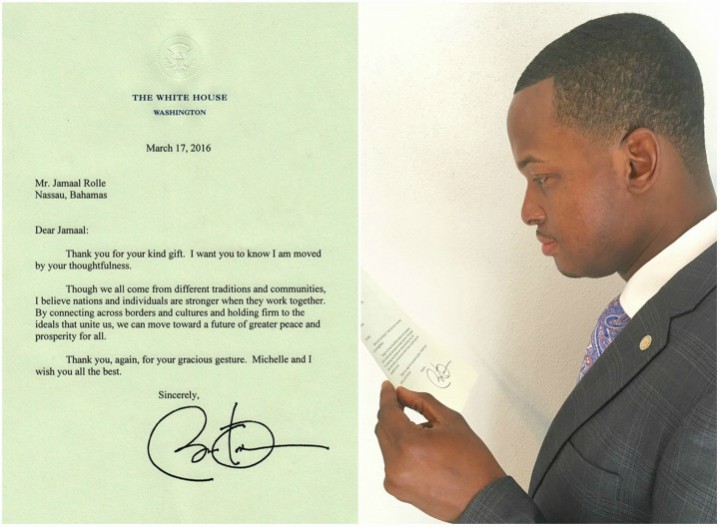 THE WHITE HOUSE
WASHINGTON
March 17, 2016
Mr. Jamaal Rolle
Nassau, Bahamas
Dear Jamaal:
Thank you for your kind gift. I want you to know I am moved
by your thoughtfulness.
Though we all come from different traditions and communities,
I believe nations and individuals are stronger when they work together.
By connecting across borders and cultures and holding firm to the
ideals that unite us, we can move toward a future of greater peace and
prosperity for all.
Thank you, again, for your gracious gesture. Michelle and I
wish you all the best.
Sincerely,